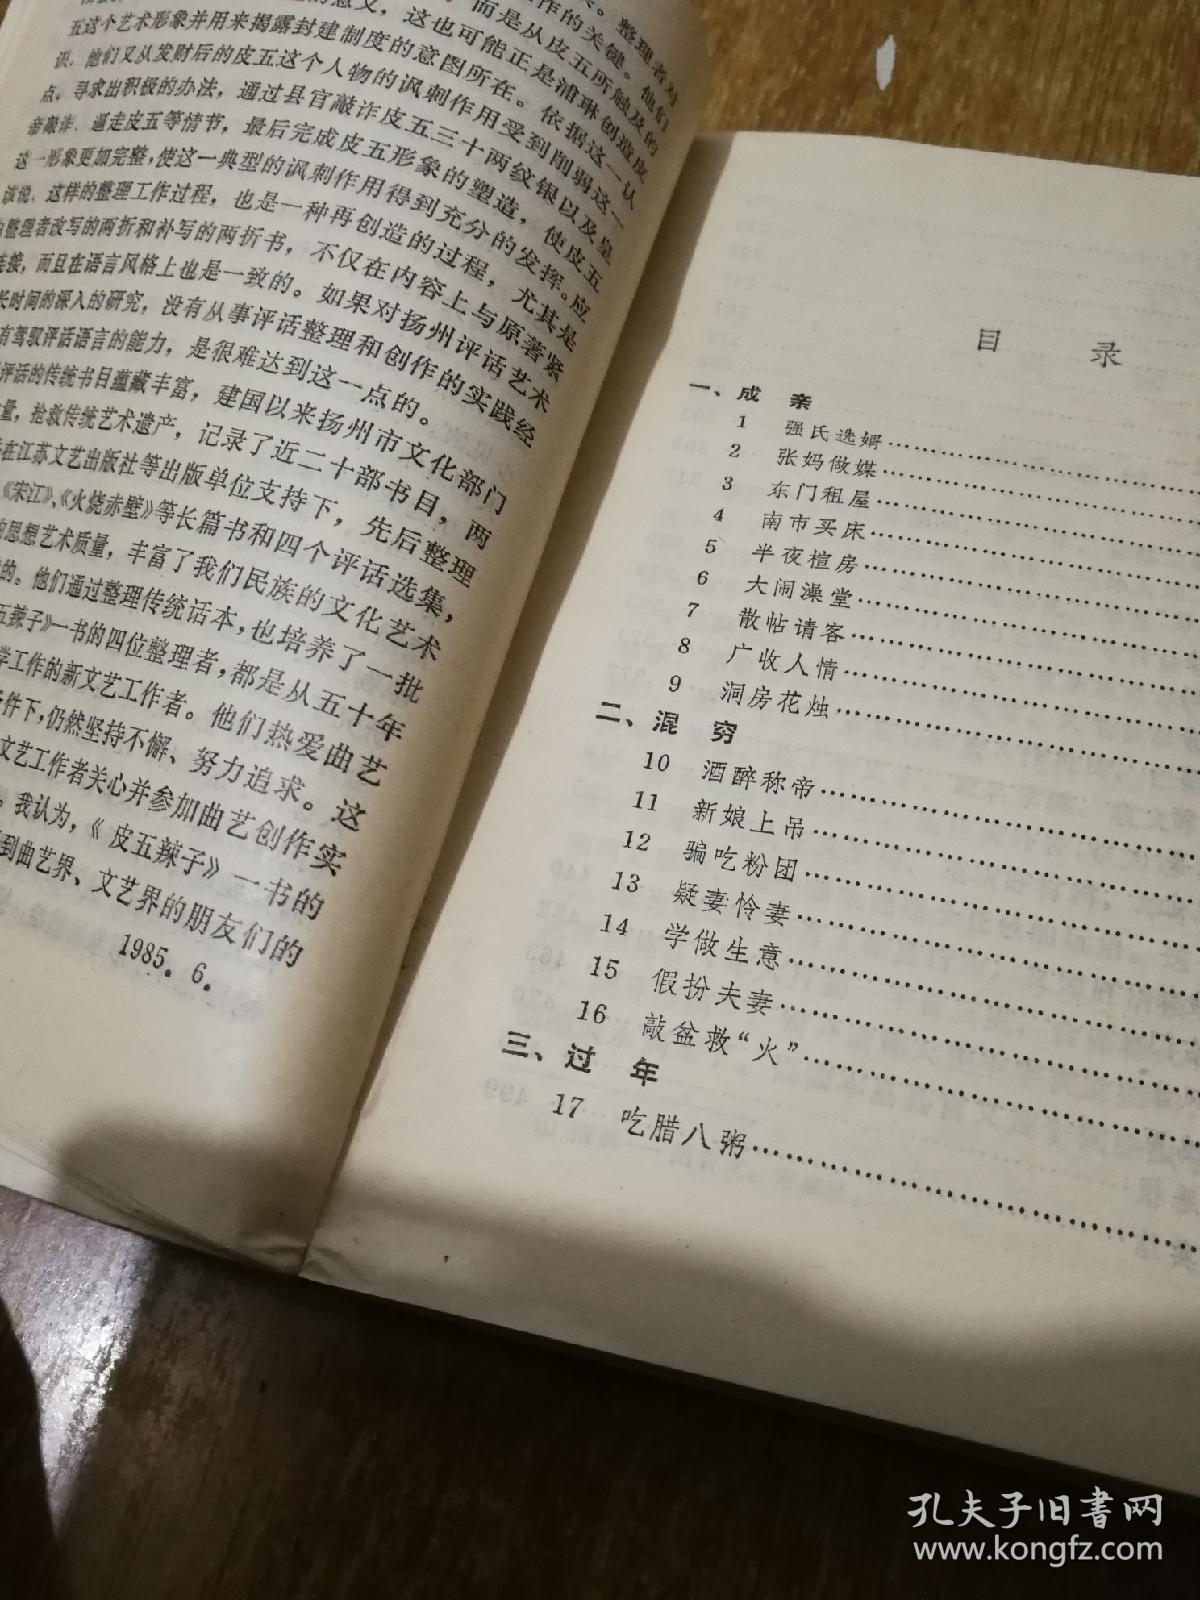 五这个艺术形象并用来揭露封建制度的意图所在。依据这一认
识，他们又从发财后的皮五这个人物的讽刺作用受到削弱这一
点，寻求出积极的办法，通过县官敲诈皮五三十两纹银以及皇
帝敲诈、逼走皮五等情节，最后完成皮五形象的塑造，使皮五
这一形象更加完整，使这一典型的讽刺作用得到充分的发挥。应
该说，这样的整理工作过程，也是一种再创造的过程，尤其是
整理者改写的两折和补写的两折书，不仅在内容上与原著紧
连接，而且在语言风格上也是一致的。如果对扬州评话艺术
长时间的深入的研究，没有从事评话整理和创作的实践经
有驾驭评话语言的能力，是很难达到这一点的。
评话的传统书目蕴藏丰富，建国以来扬州市文化部门
量，抢救传统艺术遗产，记录了近二十部书目，两
在江苏文艺出版社等出版单位支持下，先后整理
《宋江》、《火烧赤壁》等长篇书和四个评话选集，
的思想艺术质量，丰富了我们民族的文化艺术
的。他们通过整理传统话本，也培养了一批
五辣子》一书的四位整理者，都是从五十年
学工作的新文艺工作者。他们热爱曲艺
件下，仍然坚持不懈、努力追求。这
文艺工作者关心并参加曲艺创作实
。我认为，《皮五辣子》一书的
到曲艺界、文艺界的朋友们的
1985．6．
目 录
一、成 亲
1 强氏选婿……………
2 张妈做媒……………
3 东门租屋……………
4 南市买床……………
5 半夜楦房……………
6 大闹澡堂……………
7 散帖请客……………
8 广收人情……………
9 洞房花烛……………
二、混 穷
10 酒醉称帝……………
11 新娘上吊……………
12 骗吃粉团……………
13 疑妻怜妻……………
14 学做生意……………
15 假扮夫妻……………
16 敲盆救“火”……………
三、过 年
17 吃腊八粥……………
孔夫子旧书网
www.kongfz.com